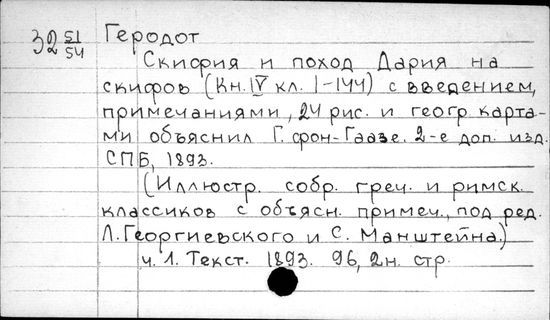 32 51/54 Геродот
Скифия и поход Дария на
скифов (Кн. IV кл. 1-144) с введением,
примечаниями, 24 рис. и геогр. карта-
ми объяснил Г. фон-Гаазе. 2-е доп. изд.
СПБ, 1893.
(Иллюстр. собр. греч. и римск.
классиков с объясн. примеч., под ред.
Л. Георгиевского и С. Манштейна.)
ч. 1. Текст. 1893. 96, 2н. стр.